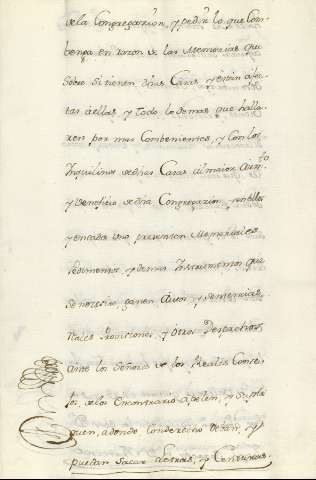 de la Congregazion, y pedir lo que Com-
benga en razon de las Memorias que
sobre si tienen dhas Casas, y estan afec-
tas a ellas, y todo lo demas que halla-
ren por mas Combeniente, y con los
Inquilinos de dhas Casas al maior Aum.to
y beneficio de dha Congregazion, y en ellos
y en cada uno presenten Memoriales
Pedimentos, y demas Instrumentos que
se nezesite, ganen Autos, y Sentencias,
Reales Provisiones, y otros Despachos,
ante los Señores de los Reales Conse-
jos, de lo en Contrario apelen, y Supli-
quen, adonde, con derecho Devan, y
puedan sacar Letras, y Censuras.